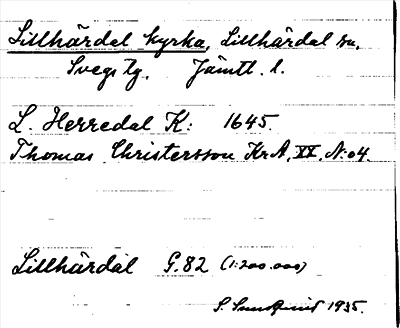 Lillhärdal kyrka, Lillhärdal sn.
Svegs tg. Jämtl. l.
L. Herredal K: 1645.
Thomas Christersson KrA, XX, N:o 4.
Lillhärdal G.82 (1:200.000)
S. 1935.